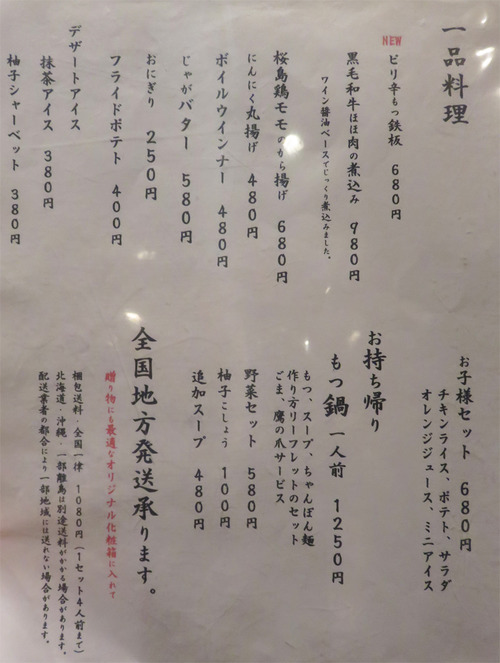 一品料理
NEW
ピリ辛もつ鉄板 680円
黒毛和牛ほほ肉の煮込み 980円
ワイン醤油ベースでじっくり煮込みました。
桜島鶏モモのから揚げ 680円
にんにく丸揚げ 480円
ボイルウインナー 480円
じゃがバター 580円
おにぎり 250円
フライドポテト 400円
デザートアイス
抹茶アイス 380円
柚子シャーベット 380円
お子様セット 680円
チキンライス、ポテト、サラダ
オレンジジュース、ミニアイス
お持ち帰り
もつ鍋 一人前 1250円
もつ、スープ、ちゃんぽん麺
作り方リーフレットのセット
ごま、鷹の爪サービス
野菜セット 580円
柚子こしょう 100円
追加スープ 480円
全国地方発送承ります。
贈り物にも最適なオリジナル化粧箱に入れて
梱包送料・全国一律 1080円（1セット4人前まで）
北海道・沖縄・一部離島は別途送料がかかる場合があります。
配送業者の都合により一部地域には送れない場合があります。